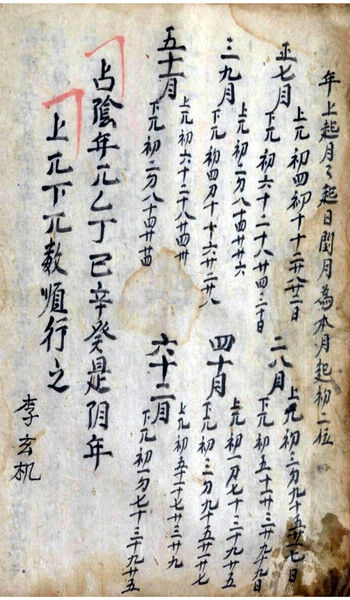 年上起月々起日閏月為本月起初二位
正七月
上兀初四初十
下兀初六十二十八廿四三十日
二八月
上兀初三初九十五廿一廿七日
下兀初五十一
三九月
上兀初二初八十四廿廿六
下兀初四初十十六廿二廿八
四十月
上兀初一初七十三十九廿五
下兀初三初九十五廿一廿七
五十一月
上兀初六十二十八廿四卅
下兀初二初八十四廿
六十二月
上兀初五十一十七廿三廿九
下兀初一初七十三十九廿五
占陰年兀乙丁己辛癸是阴年
上兀下兀数順行之
李玄机